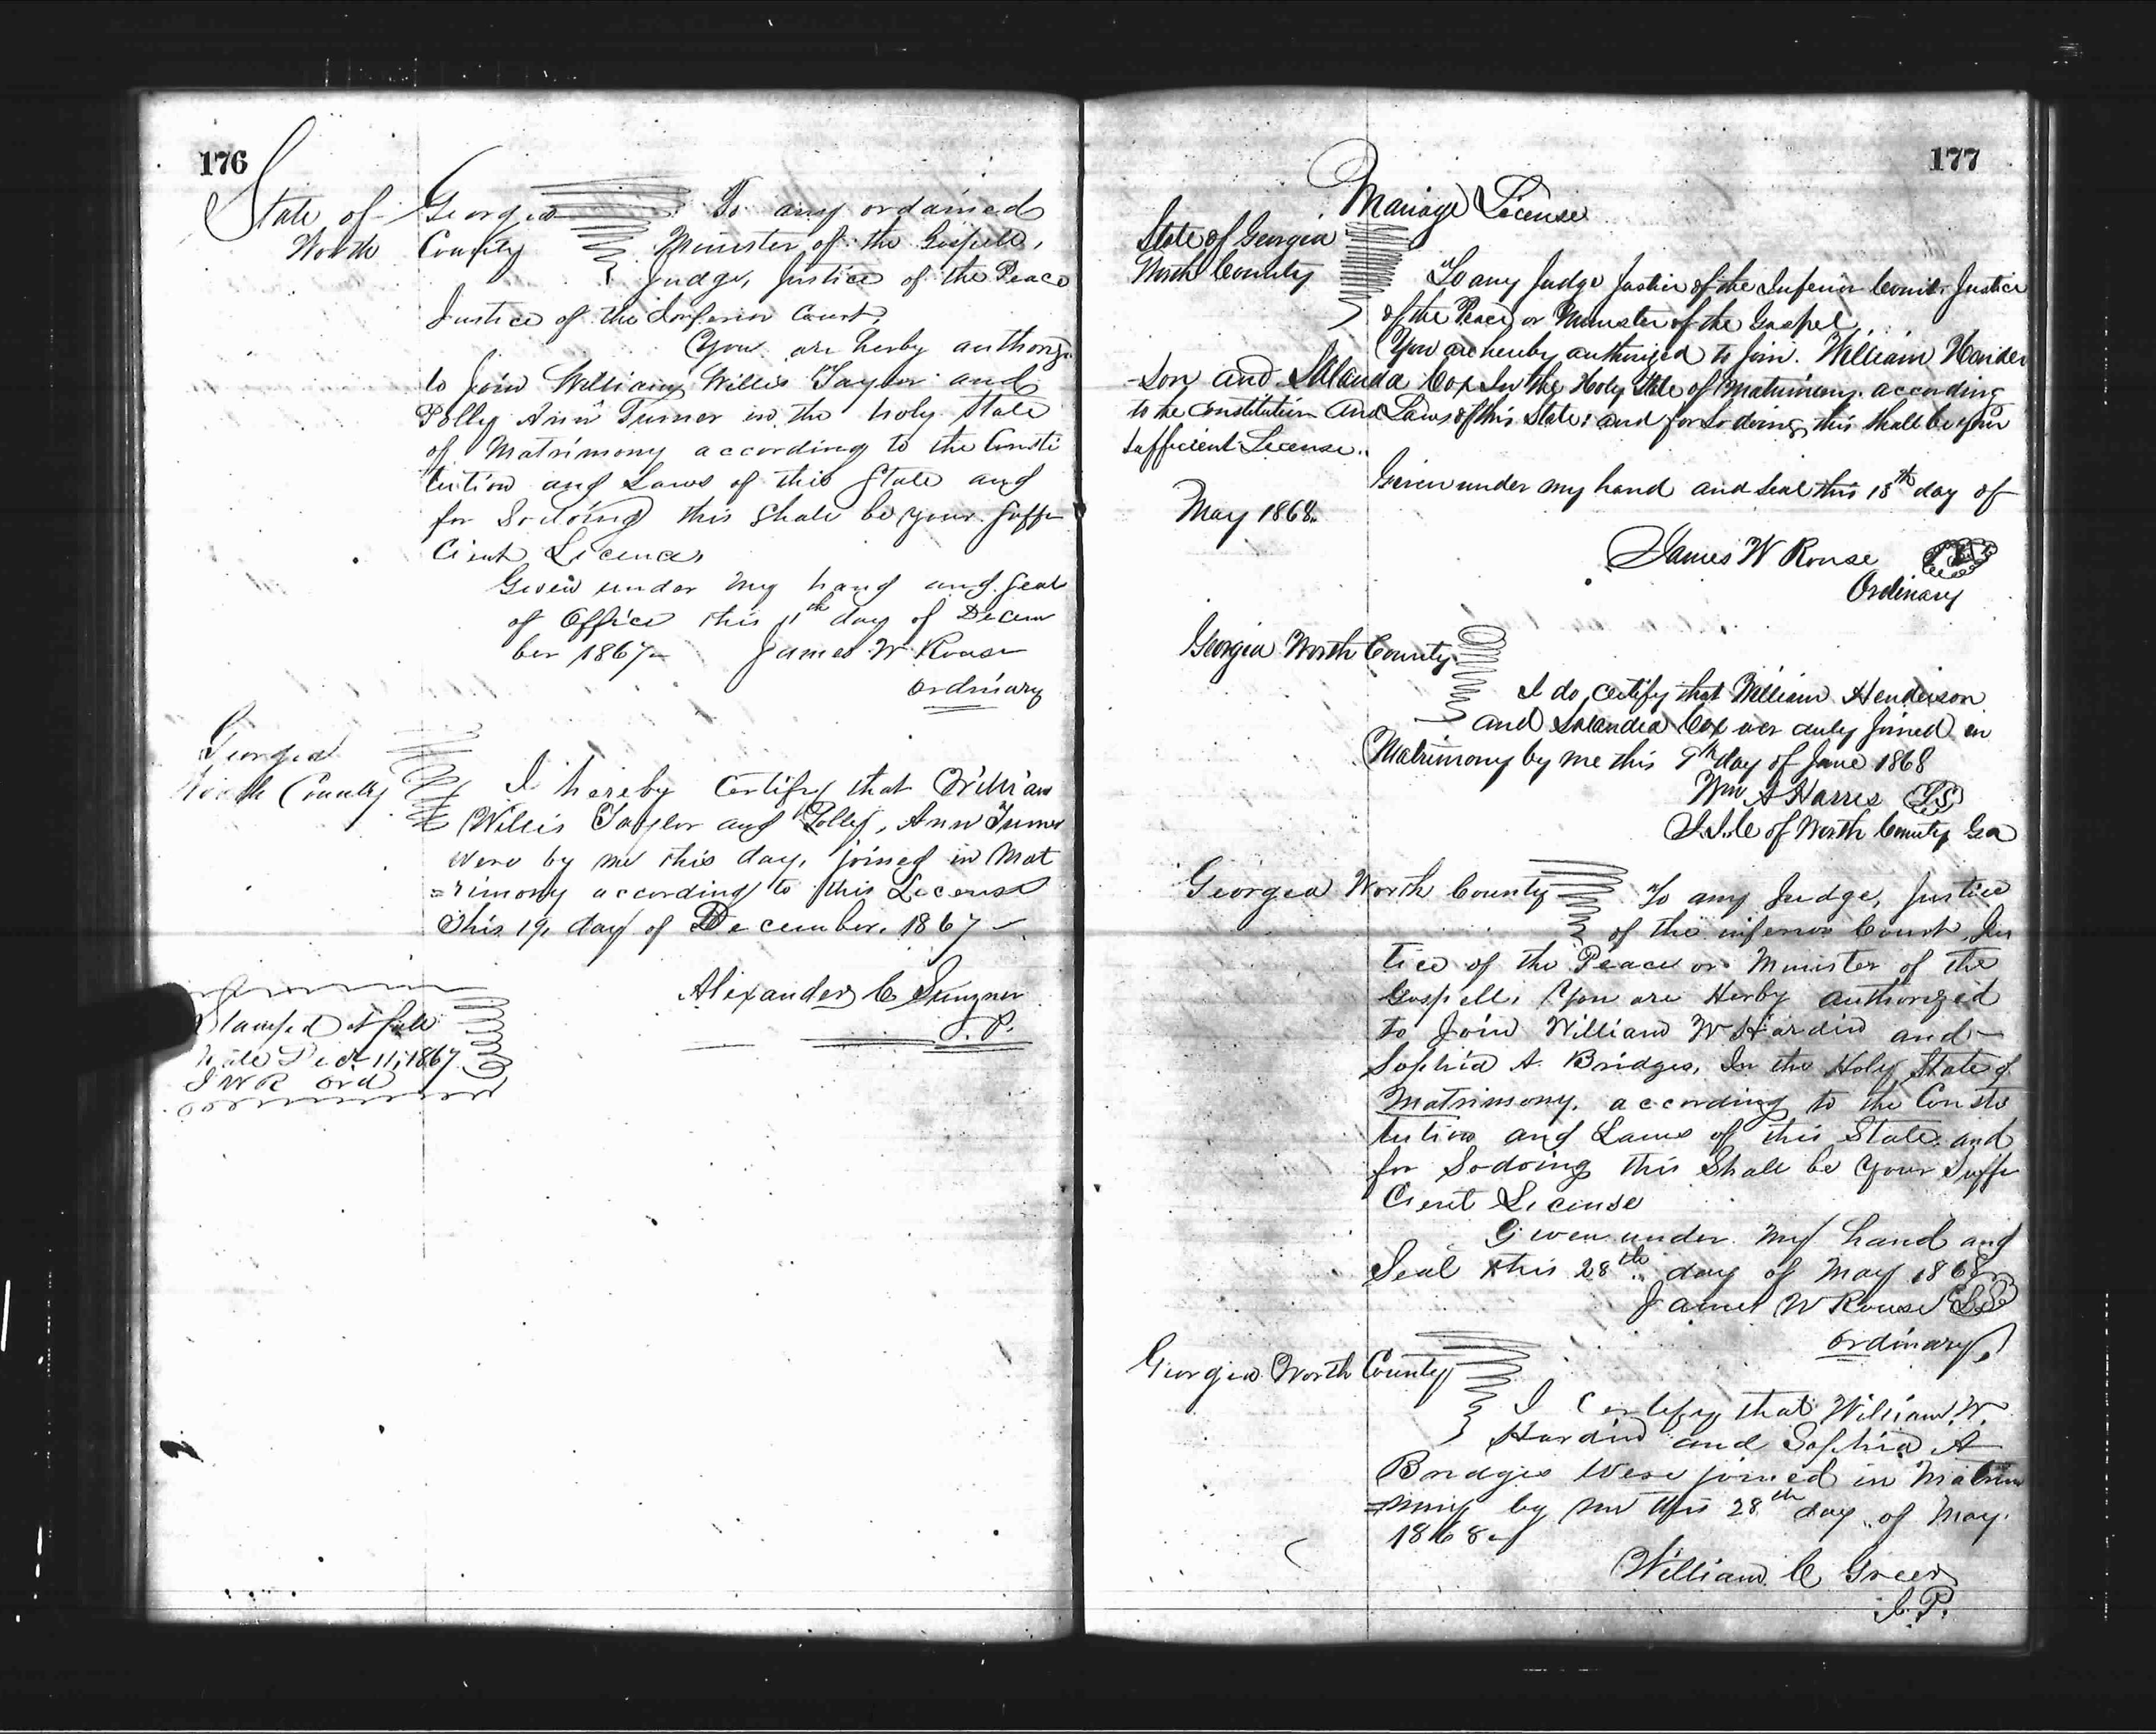 176
State of Georgia To any ordained
Worth County Minister of the Gospell,
Judge, Justice of the Peace
Justice of the Inferior Court,
You are herby authorize
to Join William Willis Taylor and
Polly Ann Turner in the holy State
of Matrimony according to the Consti
tution and Laws of this State and
for Sodoing this Shall be your Suffi
Cient Licence,
Given under my hand and Seal
of Office this 11th day of Decem
ber 1867 James W Rouse
ordinary
Georgia
Worth County I hereby Certify that William
Willis Taylor and Polly, Ann Turner
were by me this day, joined in Mat
=rimony according to this License
this 19, day of December, 1867
Alexander C Sumner
J. P.
Stamped at full
rate Dec 11, 1867
J W R ord
177
Mariage License
State of Georgia
Worth County To any Judge Justice of the Inferior Court Justice
of the Peace or Minister of the Gospel,
You are hereby authorized to Join William Hender
-son and Cox In the Holy State of Matrimony according
to the Constitution and Laws of this State: and for So doing this Shall be your
Sufficient License.
Given under my hand and Seal this 18th day of
May 1868.
James W Rouse LS
Ordinary
Georgia Worth County
I do certify that William Henderson
and Cox wer duly Joined in
Matrimony by me this 9th day of June 1868
Wm A Harris LS
J.I.C of Worth County Ga
Georgia Worth County To any Judge, Justice
of the inferior Court, Jus
tice of the Peace or Minister of the
Gospell, You are Herby authorized
to Join William W Hardin and
Sophia A. Bridges, In the Holy State of
Matrimony, according to the Consti
tution and Laws of this State and
for Sodoing this Shall be Your Suffi
Cient License
Given under My hand and
Seal this 28th day of May 1868
James W Rouse LS
ordinary
Georgia Worth County
I Certify that William W.
Hardin and Sophia A
Bridges Were joined in Matrim
=mony by me this 28th day of May
1868
William C Green
J. P.